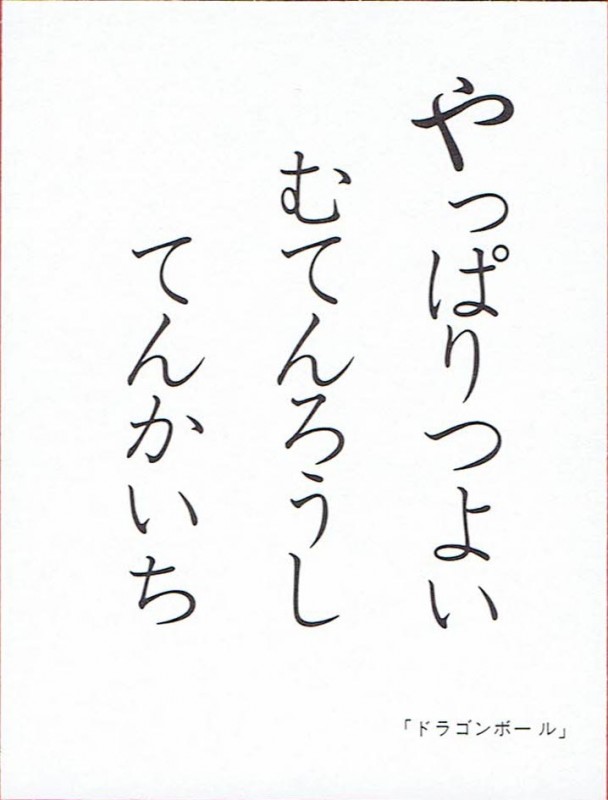 やっぱりつよい
むてんろうし
てんかいち
「ドラゴンボール」